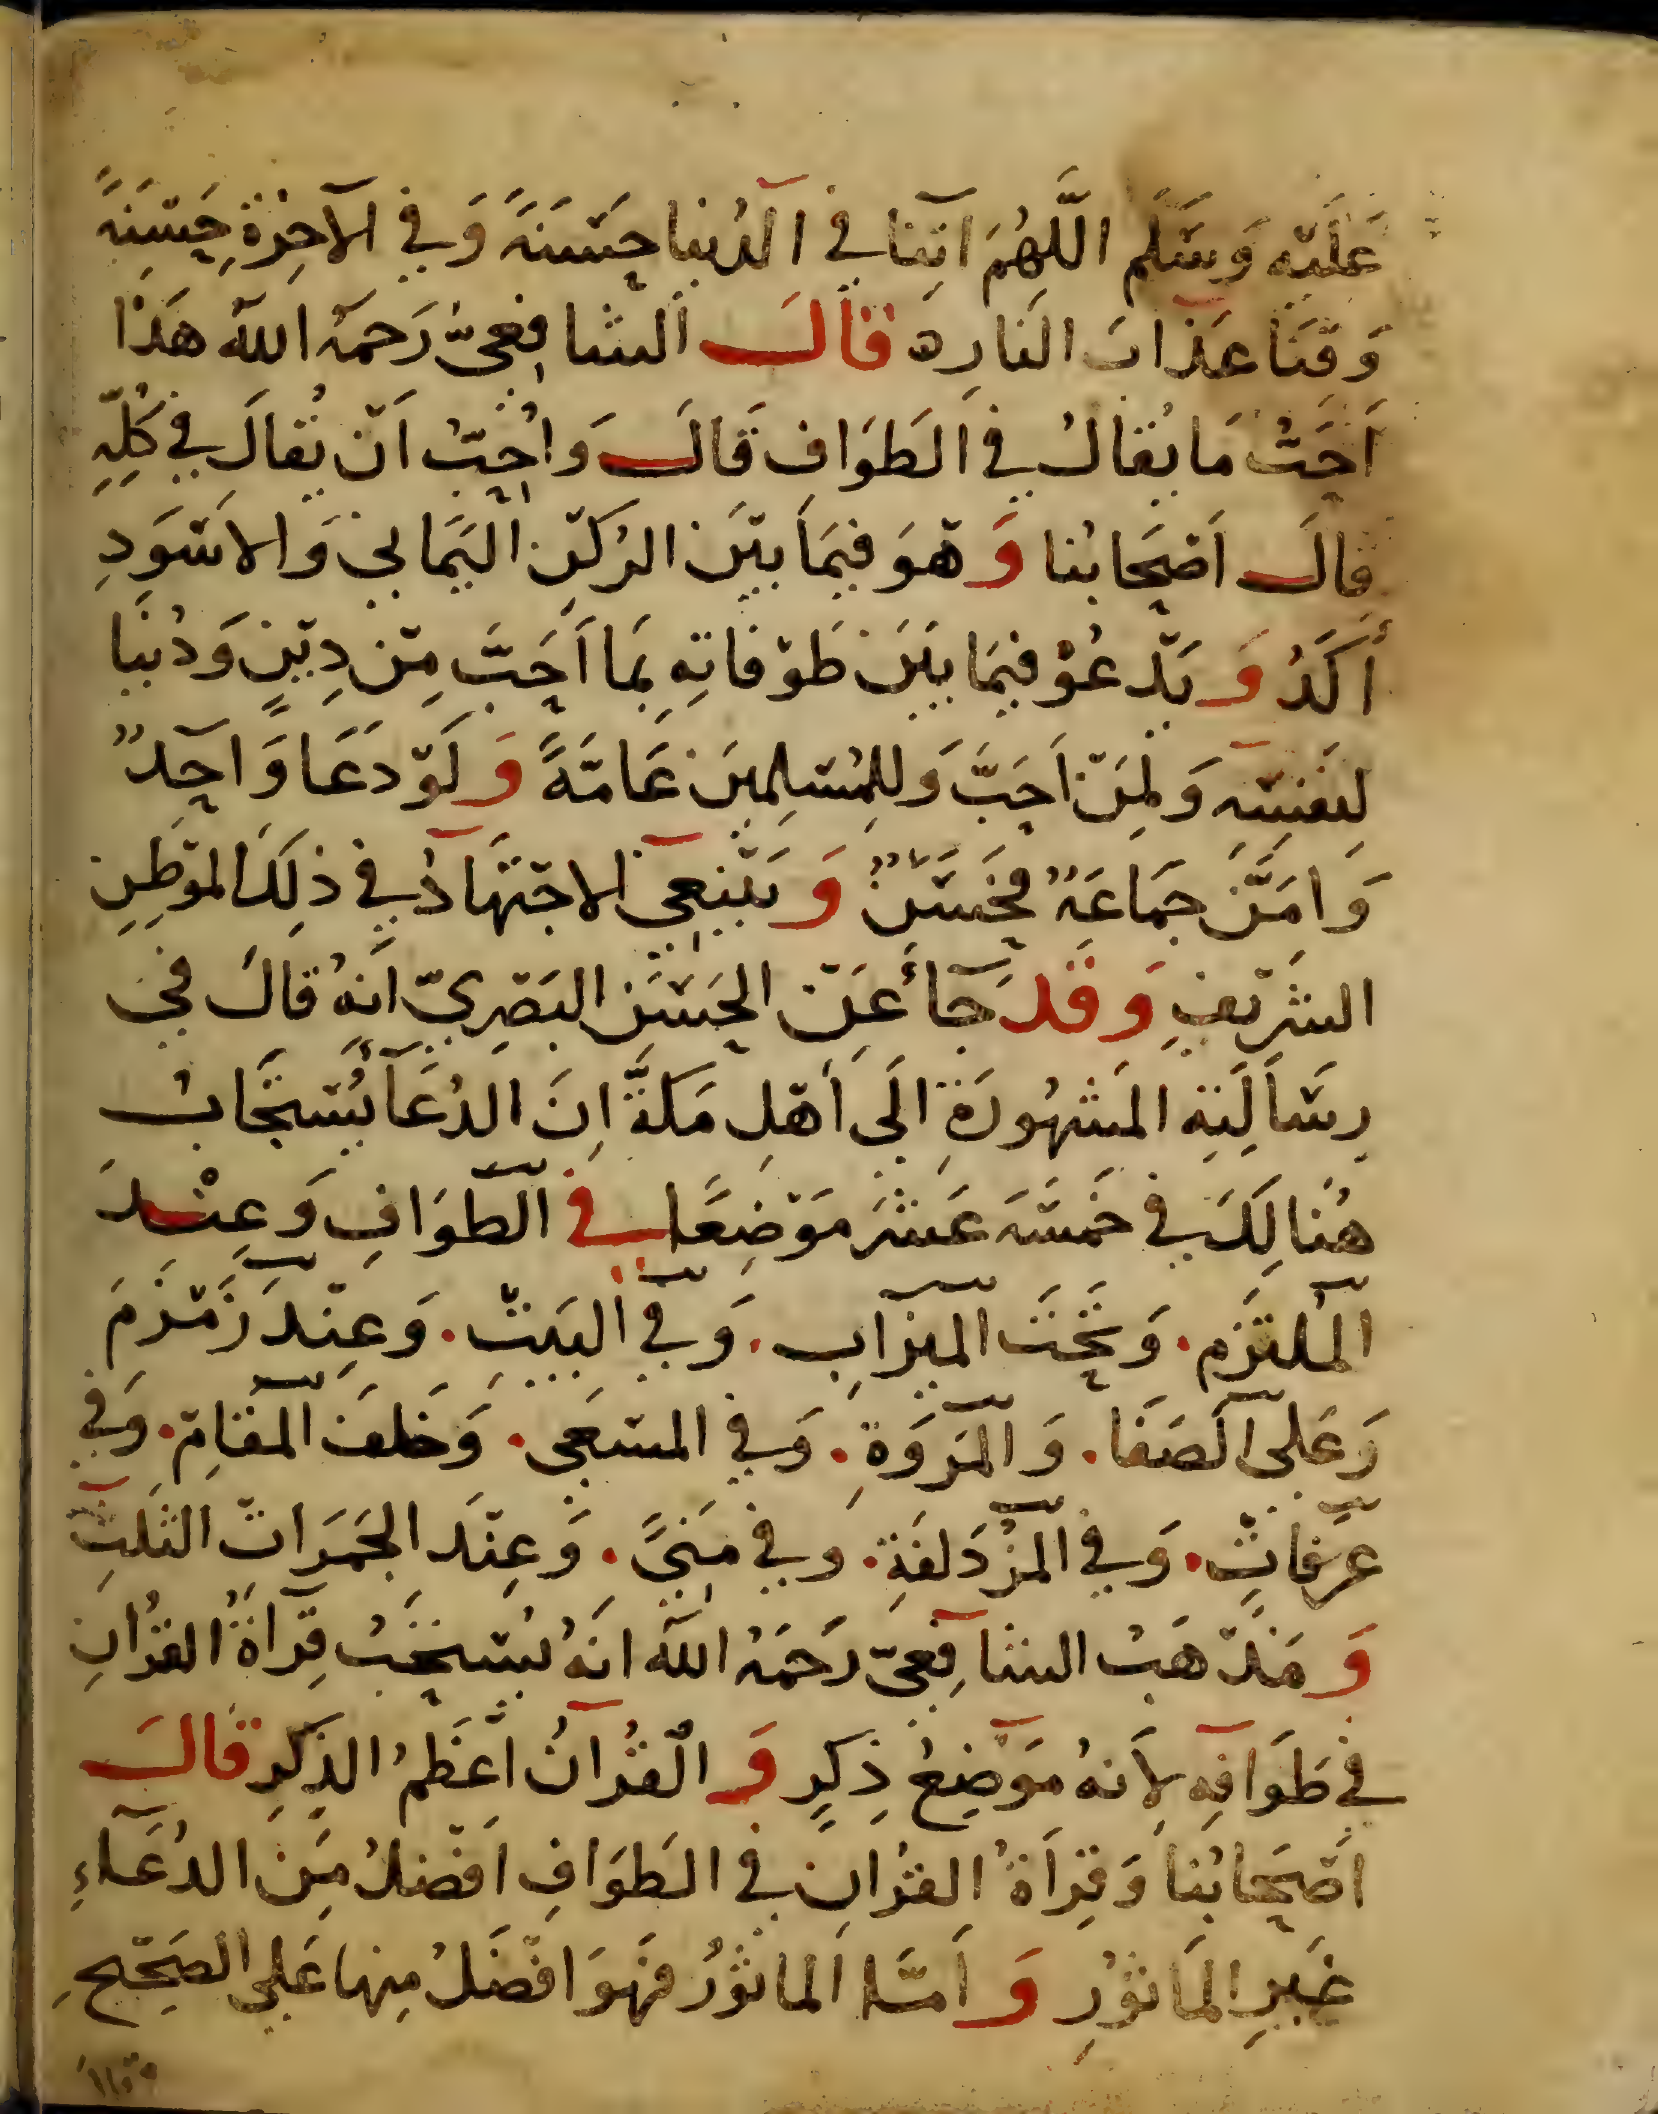 عَلَيْهِ وَسَلَّم اللَّهُمَّ اٰتِنَا فِي الدُّنيَا حَسَنَةً وَفِي الآخِرَةِ حَسَنَةً
وَقِنَا عَذَابَ النَارِ ه قَالَ الشافِعِيّ رَحمَهُ الله هَذَا
أَحَبُّ مَا يُقَالُ فِي الطَوَافِ قَالَ وَأُحِبُّ اَنْ يُقَالَ فِي كُلِّهِ
قَالَ اَصْحَابُنا وَهْوَ فِيمَا بَيْنَ الرُكْنِ اليَمَانِي وَالاَسْوَدِ
أَكَدُ وَيَدْعُوْ فِيمَا بَيْنَ طَوْفَاتِهِ بِمَا اَحَبَّ مِنْ دِيْنٍ وَدُنيَا
لِنَفْسِهِ وَلِمَنْ اَحَبَّ وَلِلمُسْلِمِينَ عَامَّةً وَلَوْ دَعَا وَاحِدٌ
وَاَمَّنَ جَمَاعَةٌ فَحَسَنٌ وَيَنْبَغِي الاجْتِهَادُ فِي ذلِكَ المَوْطِنِ
الشَرِيْفِ وَقَد جَآءَ عَنْ الحَسَنِ البَصْرِيّ اَنَهُ قَالَ فِي
رِسَالَتِهِ المَشهُورَةِ اِلَى أَهْلِ مَكَّةَ اِنَ الدُعَآءَ يُسْتَجَابُ
هُنَالِكَ فِي خَمسَةَ عَشَرَ مَوْضِعًا فِي الطَوَافِ وَعِنْدَ
المُلتَزَم . وَتَحْتَ المِيزَابِ . وَفِي البَيْتِ . وَعِنْدَ زَمْزَمَ
وَعَلى الصَفَا . وَالمَروَةِ . وَفِي المسْعَى . وَخَلفَ المَقَامِ . وَفِي
عَرَفَاتٍ . وَفِي المُزْدَلفَةِ . وَفِي مِنَىً . وَعِنْدَ الجَمَرَاتِ الثَلٰثِ
وَمَذْهَبُ الشَافِعِيّ رَحمَهُ الله اَنَهُ يُسْتَحَبُ قِرَآةُ القُرْانِ
فِي طَوَافِهِ لِاَنَهُ مَوْضِعُ ذِكرٍ وَالْقُرْآنُ اَعْظَمُ الذِكرِ قَالَ
اَصْحَابُنَا وَقِرَآةُ القُرْانِ فِي الطَوَافِ اَفْضَلُ مِنَ الدُعَآءِ
غَيرِ المَاثُورِ وَاَمَّا المَاثُوْرُ فَهُوَ اَفْضَلُ مِنهَا عَلى الصَحِيْحِ